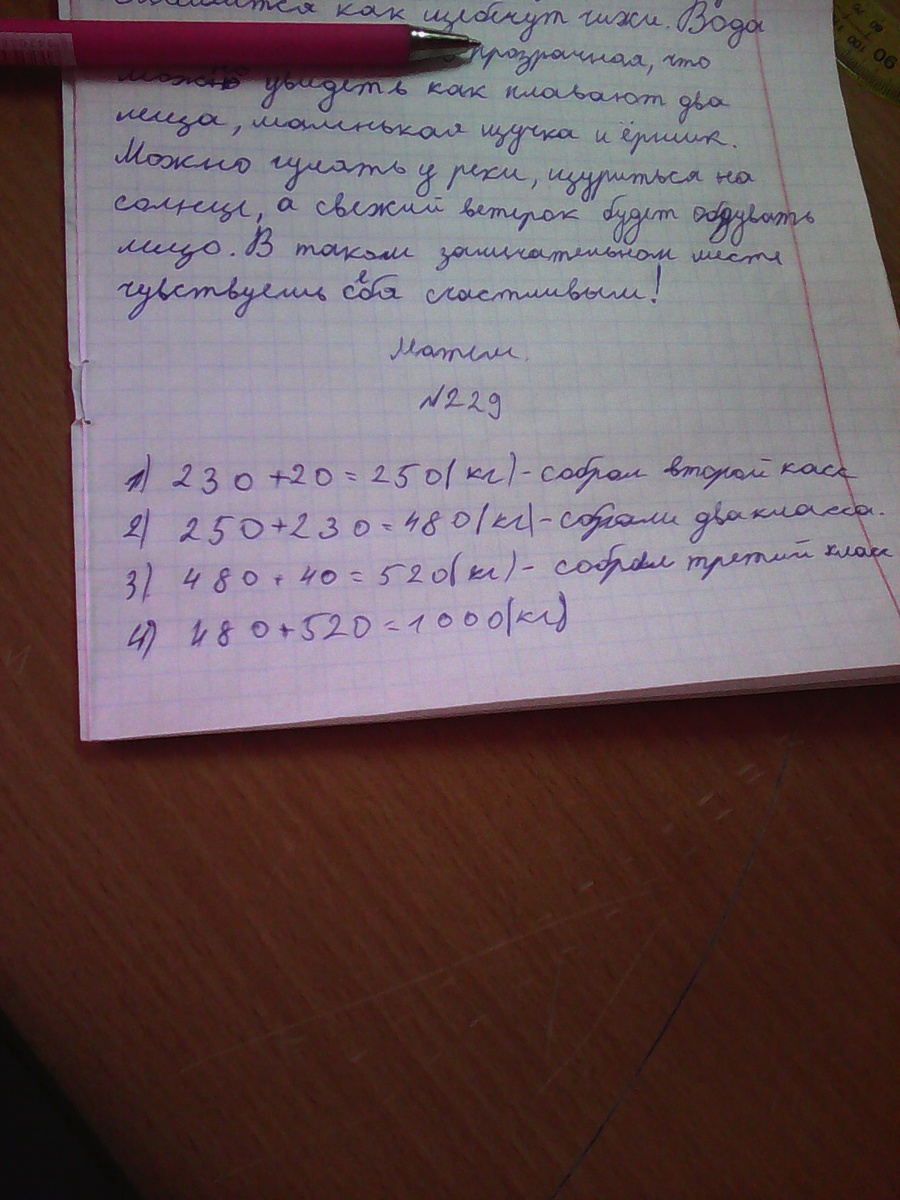 как щебечут чижи. Вода
прозрачная, что
можно увидеть как плавают два
леща, маленькая щучка и ёршик.
Можно гулять у реки, щуриться на
солнце, а свежий ветерок будет обдувать
лицо. В таком замечательном месте
чувствуешь себя счастливым!
Матем.
№229
1) 230+20=250(кг)-собрал второй касс
2) 250+230=480(кг)-собрали два класса.
3) 480+40=520(кг)- собрал третий класс
4) 480+520=1000(кг)
90
100
80